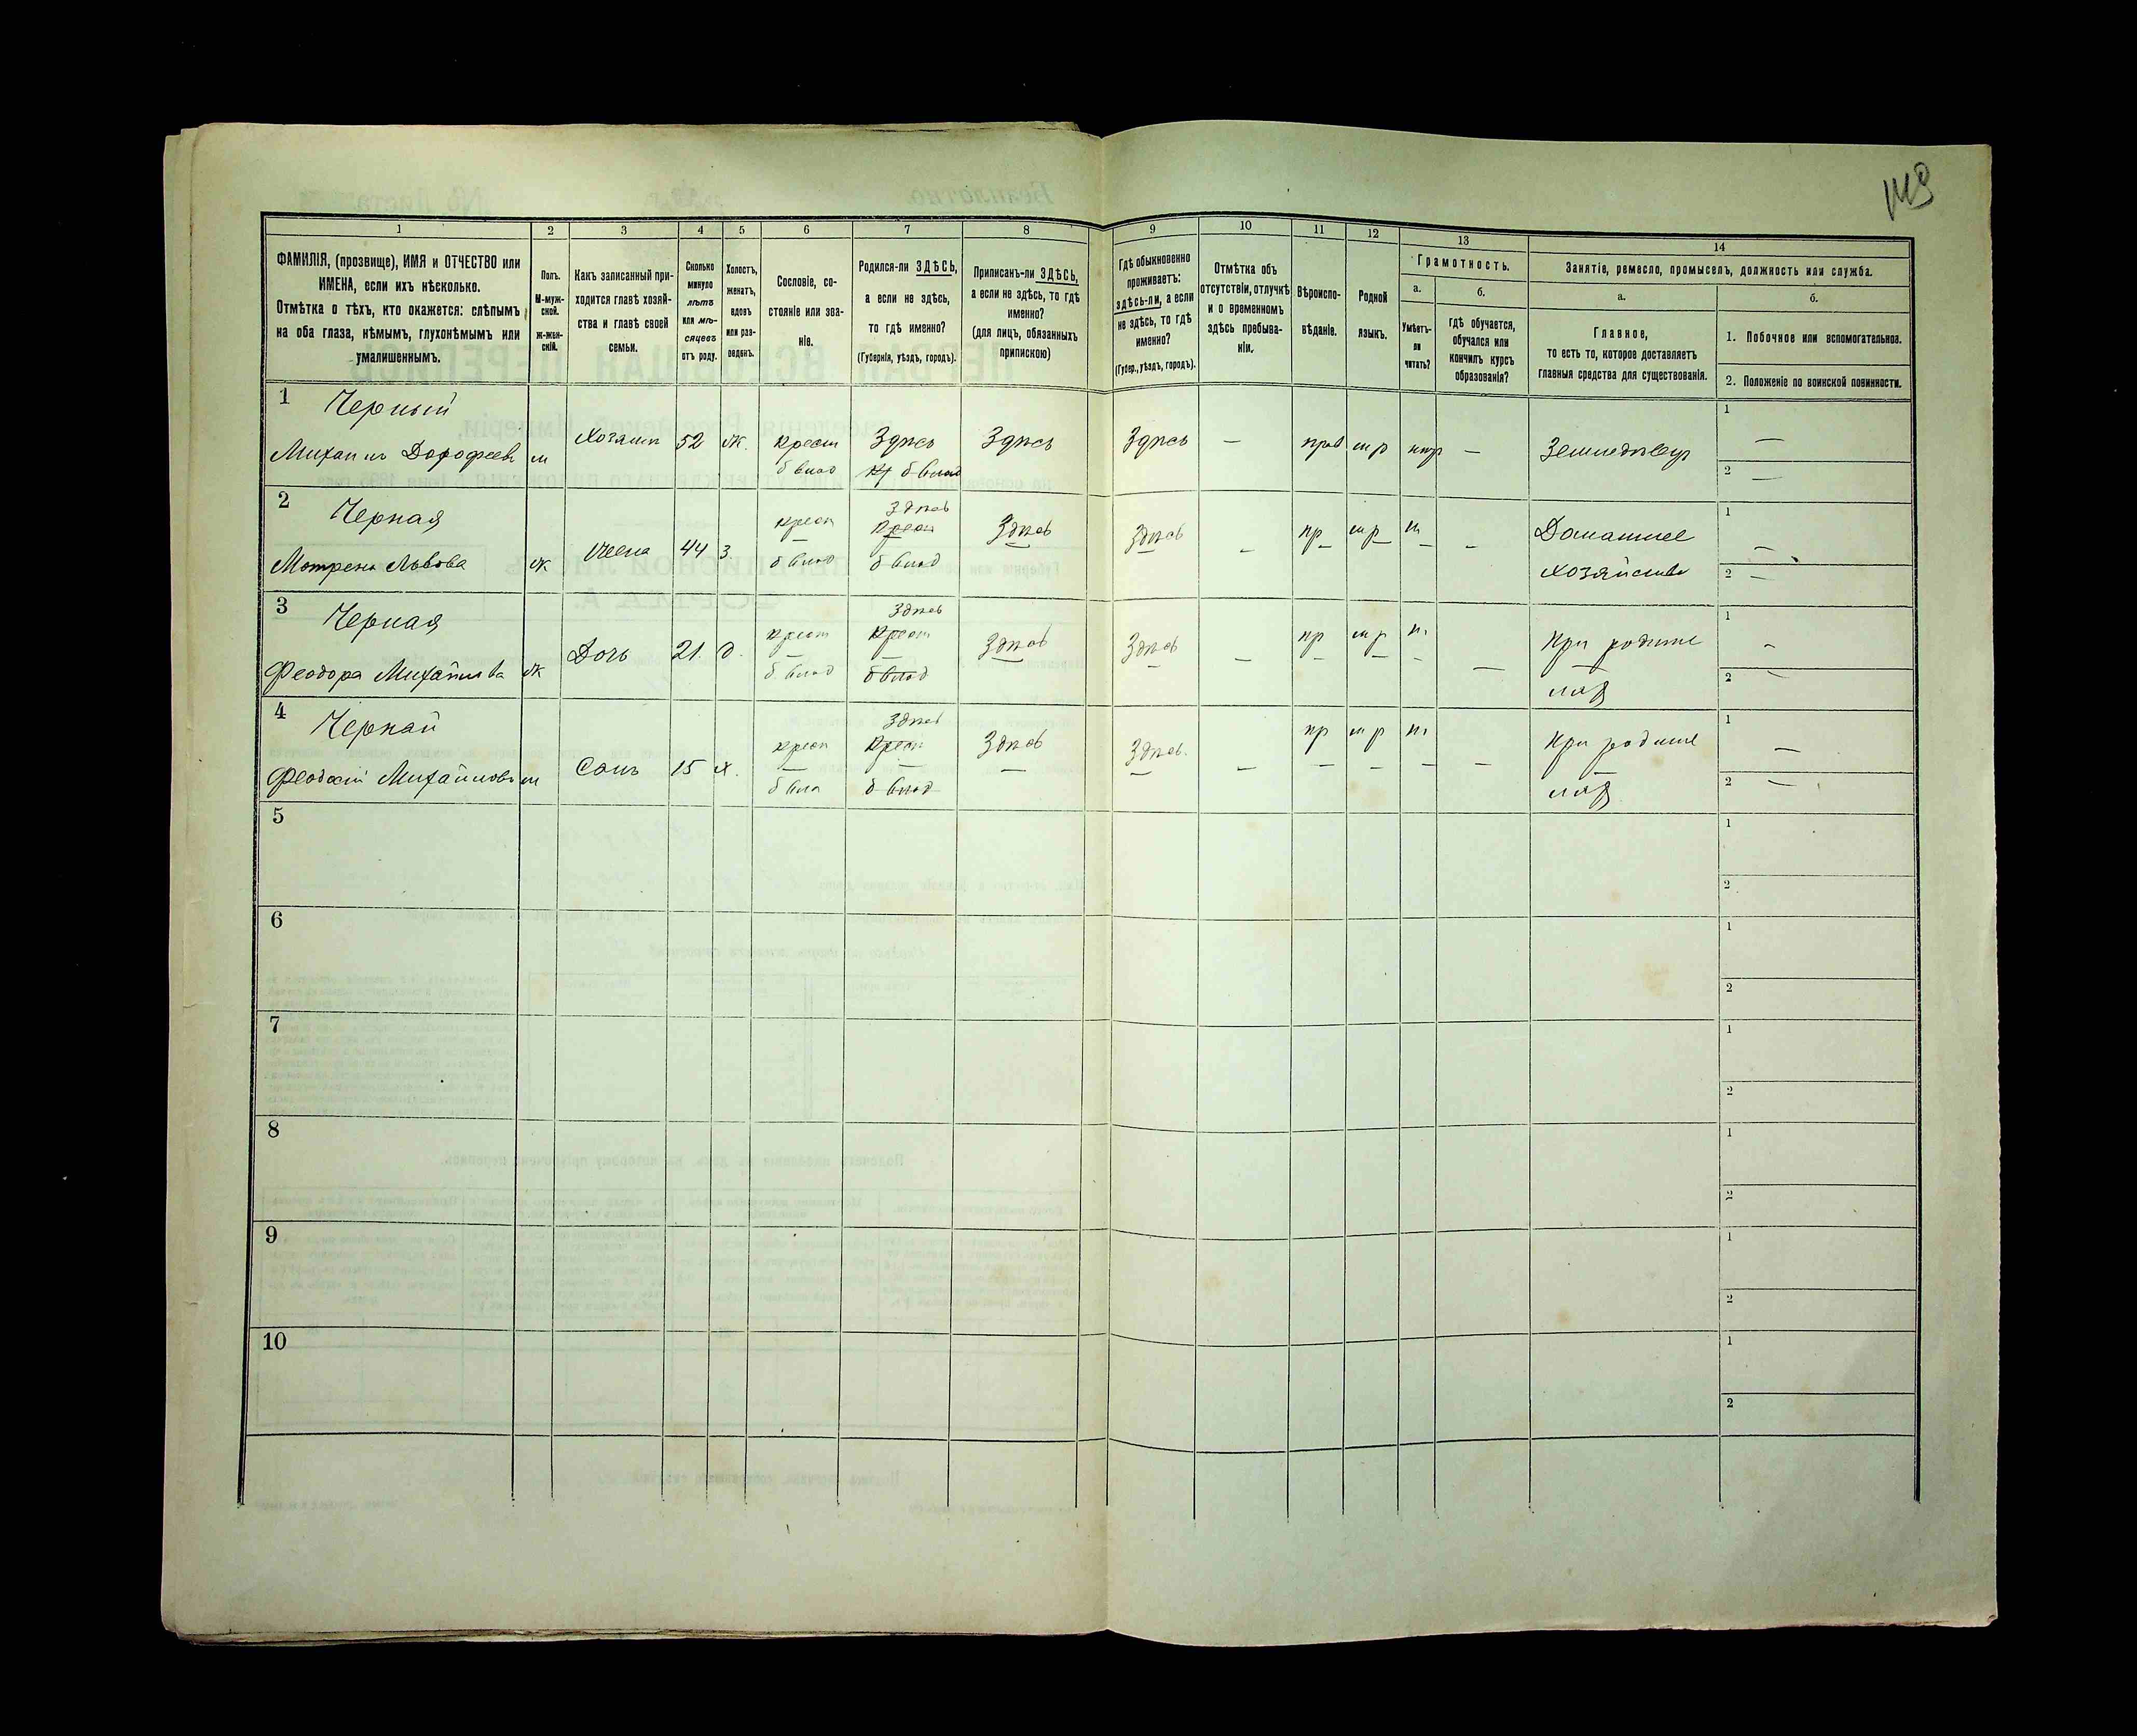 119
1 2 3 4 5 6 7 8 9 10 11 12 13 14
ФАМИЛІЯ, (прозвище), ИМЯ и ОТЧЕСТВО или
ИМЕНА, если ихъ нѣсколько.
Отмѣтка о тѣхъ, кто окажется: слѣпымъ
на оба глаза, нѣмымъ, глухонѣмымъ или
умалишеннымъ.
Полъ.
М-муж-
ской.
ж-жен-
скій.
Какъ записанный при-
ходится главѣ хозяй-
ства и главѣ своей
семьи.
Сколько
минуло
лѣтъ
или мѣ-
сяцевъ
отъ роду.
Холостъ,
женатъ,
вдовъ
или раз-
веденъ.
Сословіе, со-
стояніе или зва-
ніе.
Родился-ли ЗДѢСЬ,
а если не здѣсь,
то гдѣ именно?
(Губернія, уѣздъ, городъ).
Приписанъ-ли ЗДѢСЬ,
а если не здѣсь, то гдѣ
именно?
(для лицъ, обязанныхъ
припискою)
Гдѣ обыкновенно
проживаетъ:
здѣсь-ли, а если
не здѣсь, то гдѣ
именно?
(Губер., уѣздъ, городъ).
Отмѣтка объ
отсутствіи, отлучкѣ
и о временномъ
здѣсь пребыва-
ніи.
Вѣроиспо-
вѣданіе.
Родной
языкъ.
Грамотность.
а.
Умѣетъ-
ли
читать?
б.
гдѣ обучается,
обучался или
кончилъ курсъ
образованія?
Занятіе, ремесло, промыселъ, должность или служба.
а.
Главное,
то есть то, которое доставляетъ
главныя средства для существованія.
б.
1. Побочное или вспомогательное.
2. Положеніе по воинской повинности.
1 Черный
Михаилъ Дорофеевъ м Хозяинъ 52 ж. крест Здѣсь Здѣсь Здѣсь — прав мр нѣтъ — Земледѣлец 1 —
б влад б влад 2 —
2 Черная
Мотрена Львова ж Жена 44 з крест Здѣсь Здѣсь Здѣсь — пр мр н — Домашнее 1 —
Крест
б влад б влад хозяйство 2 —
3 Черная
Феодора Михайлова ж Дочь 21. д. крест Здѣсь Здѣсь Здѣсь — пр мр н. — При родите 1 —
Крест
б влад б влад лях 2 —
4 Черный
Феодосій Михайловъ м Сынъ 15 х. крест Здѣсь Здѣсь Здѣсь. — пр мр н. — При родите 1 —
Крест
б вла б влад лях 2 —
5 1
2
6 1
2
7 1
2
8 1
2
9 1
2
10 1
2